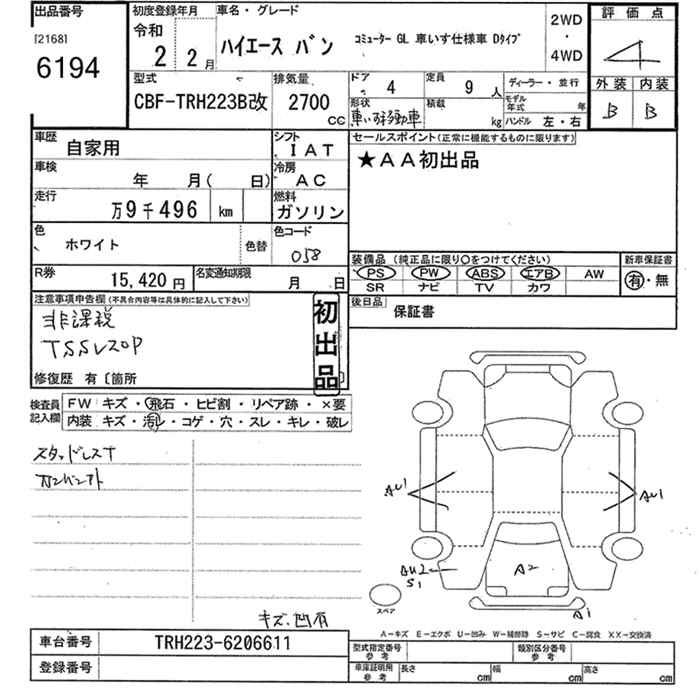 出品番号
[2168]
6194
初度登録年月
令和
2 2月
車名・グレード
ハイエース バン コミューター GL 車いす仕様車 Dタイプ
2WD
・
4WD
評価点
4
外装 内装
B B
型式
CBF-TRH223B改
排気量
2700
CC
ドア 4
定員 9 人
ディーラー・並行
形状
車いす移動車
積載
kg
モデル年式 年
ハンドル 左・右
車歴 自家用
シフト
IAT
車検 年 月( 日)
冷房
AC
走行
万9千496 km
燃料
ガソリン
色
ホワイト
色替
色コード
058
R券 15,420円
名変通知期限 月 日
セールスポイント(正常に機能するものに限ります)
★AA初出品
装備品 (純正品に限り○をつけてください)
PS PW ABS エアB AW
SR ナビ TV カワ
新車保証書
有・無
後日品 保証書
注意事項申告欄(不具合内容等は具体的に記入して下さい)
非課税
TSSV20P
初出品
修復歴 有〔箇所
検査員記入欄
FW キズ・飛石・ヒビ割・リペア跡・×要
内装 キズ・汚レ・コゲ・穴・スレ・キレ・破レ
スタッドレスT
キズ、凹有
AU1
AU1
AU2
S1
A2
A1
スペア
A－キズ E－エクボ U－凹み W－補修跡 S－サビ C－腐食 XX－交換済
車台番号 TRH223-6206611
登録番号
型式指定番号
参考
類別区分番号
参考
車庫証明用
参考
長さ cm 幅 cm 高さ cm